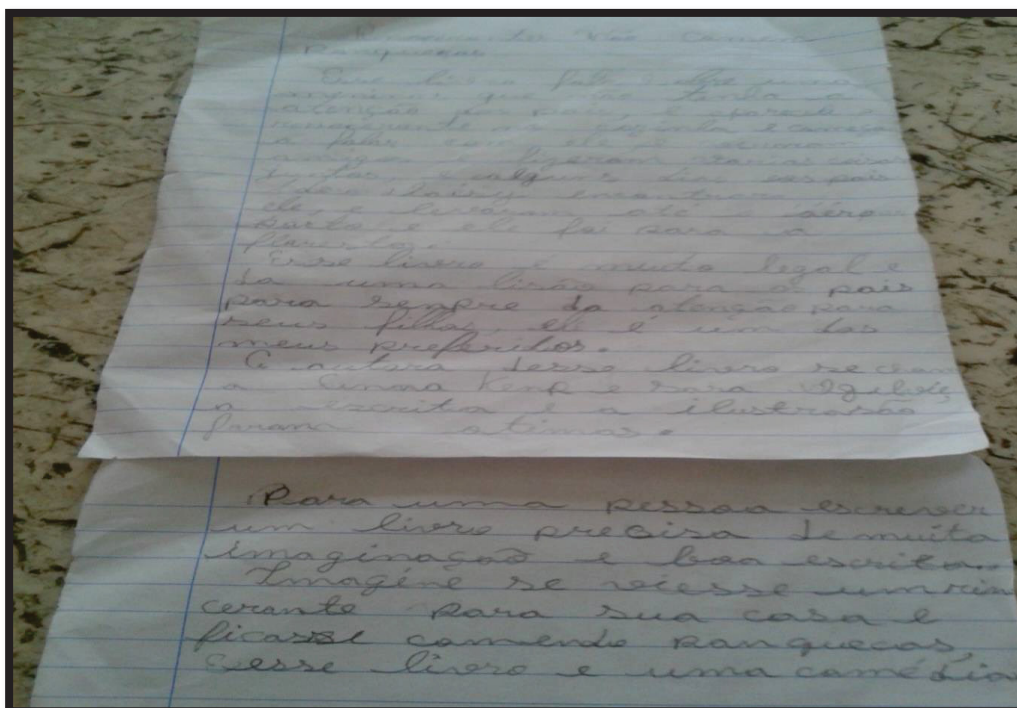 Rinocerontes não comem
Panquecas.
Esse livro fala sobre uma
menina que não tinha a
atenção dos pais, e aparece
rinoceronte na cozinha e começa
a falar com ele e
amigos e fizeram varias coisas
juntos e alguns dias os pais
Daisy encontram
ele e levaram até o aéro
porto e ele foi para a
floresta.
Esse livro é muito legal e
da uma lisão para o pais
para sempre da atenção para
seus filhos, ele é um dos
meus preferidos.
A autora desse livro se cham
a Anna Kenp e Sara Ogilvie,
a escrita e a ilustrasão
foram otimas.
Para uma pessoa escrever
um livro precisa de muita
imaginação e boa escrita.
Imagine se viesse um rino
cerante para sua casa e
ficasse comendo panquecas,
esse livro e uma comédia